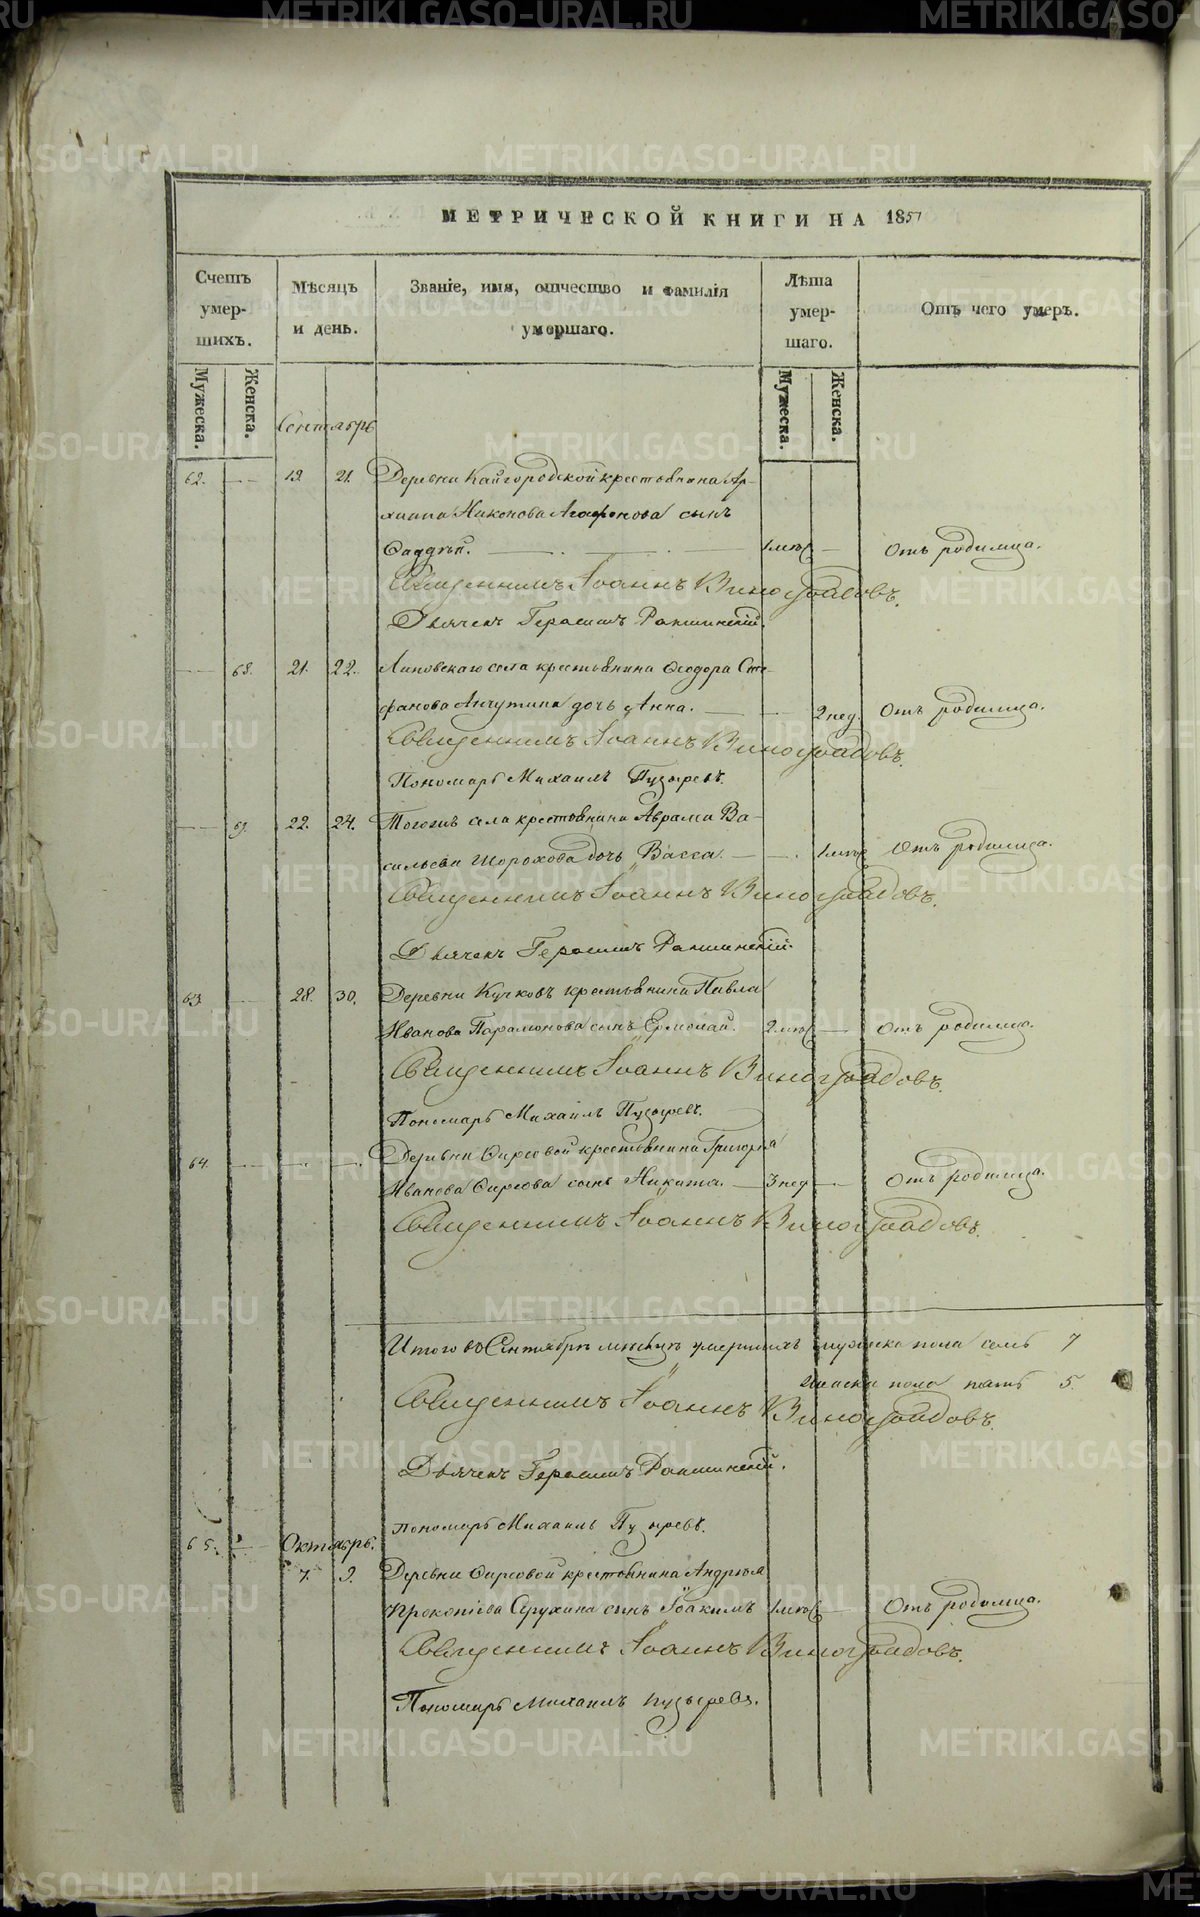 МЕТРИЧЕСКОЙ КНИГИ НА 1857
Счетъ умершихъ.
Мѣсяцъ и день.
Званіе, имя, отчество и фамилія умершаго.
Лѣта умершаго.
Отъ чего умеръ.
Мужеска.
Женска.
Мужеска.
Женска.
Сентябрь
62. 19. 21. Деревни Кайгородской крестьянина Ар-
хипа Никонова Агафонова сынъ
Фаддѣй. 1 мѣс. Отъ родимца.
Священникъ Іоаннъ Виноградовъ.
Дьячекъ Герасимъ
68. 21. 22. Липовскаго села крестьянина Ѳеодора Сте-
фанова Анчутина дочь Анна. 2 нед. Отъ родимца.
Священникъ Іоаннъ Виноградовъ.
Пономарь Михаилъ Пузыревъ.
69. 22. 24. Тогожъ села крестьянина Аврама Ва-
сильева Шорохова дочь Васса. 1 мѣс. Отъ родимца.
Священникъ Іоаннъ Виноградовъ.
Дьячекъ Герасимъ
63. 28. 30. Деревни Кучковъ крестьянина Павла
Иванова Парамонова сынъ Ермолай. 2 мѣс. Отъ родимца.
Священникъ Іоаннъ Виноградовъ.
Пономарь Михаилъ Пузыревъ.
64. Деревни Фирсовой крестьянина Григорья
Иванова Фирсова сынъ Никита. 3 нед. Отъ родимца.
Священникъ Іоаннъ Виноградовъ.
Итого въ Сентябрѣ мѣсяцѣ умершихъ мужеска пола семь 7
женска пола пять 5.
Священникъ Іоаннъ Виноградовъ.
Дьячекъ Герасимъ
Пономарь Михаилъ Пузыревъ.
65. Октябрь.
7. 9. Деревни Фирсовой крестьянина Андрея
Прокопіева Серухина сынъ Іоакимъ 1 мѣс. Отъ родимца.
Священникъ Іоаннъ Виноградовъ.
Пономарь Михаилъ Пузыревъ.
METRIKI.GASO-URAL.RU